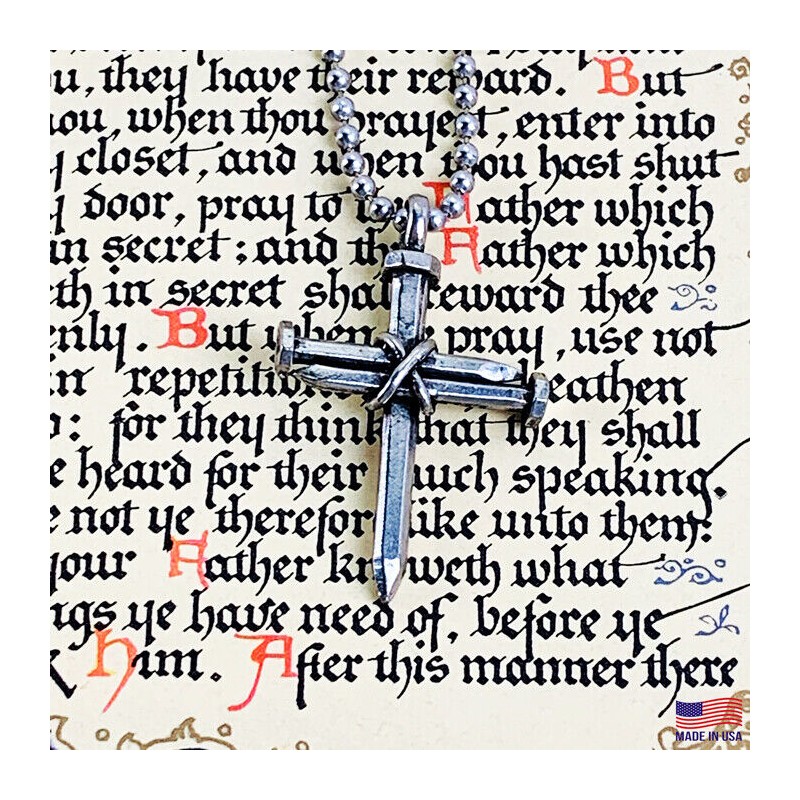 u, they have their reward. But
ou, when thou prayest, enter into
closet, and when thou hast shut
door, pray to thy Father which
in secret; and thy Father which
th in secret shall reward thee
nly. But when ye pray, use not
n repetitions heathen
: for they think that they shall
e heard for their much speaking.
e not ye therefore like unto them:
your Father knoweth what
ngs ye have need of, before ye
k him. After this manner there
MADE IN USA